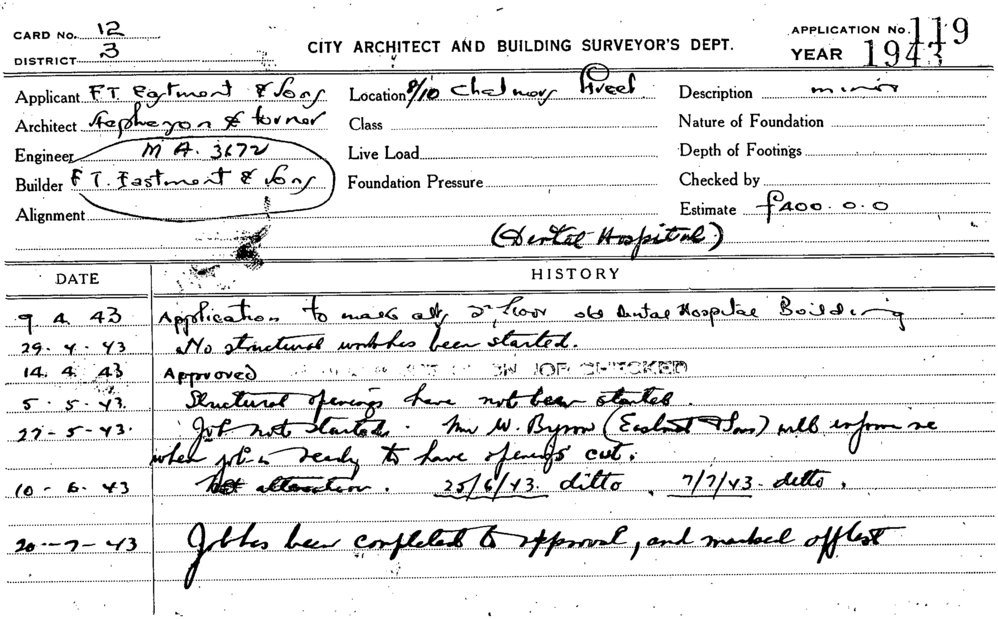 CARD No. 12
DISTRICT 3
CITY ARCHITECT AND BUILDING SURVEYOR'S DEPT.
APPLICATION No. 119
YEAR 1943
Applicant F T. Eastment & Sons
Location 8/10 Chalmers Street
Description minor
Architect Stephenson & Turner
Class
Nature of Foundation
Engineer M A. 3672
Live Load
Depth of Footings
Builder F T. Eastment & Sons
Foundation Pressure
Checked by
Alignment
Estimate £400.0.0
(Dental Hospital)
DATE HISTORY
9 4. 43 Application to make alts 2nd floor old Dental Hospital Building
29. 4. 43 No structural work has been started.
14. 4. 43 Approved JOB CHECKED
5. 5. 43. Structural openings have not been started.
27-5-43. Job not started. Mr W. Byron (Eastment & Sons) will inform me
when job is ready to have openings cut.
10-6.43 alteration. 25/6/43. ditto. 7/7/43. ditto.
20-7-43 Job has been completed to approval, and marked off list